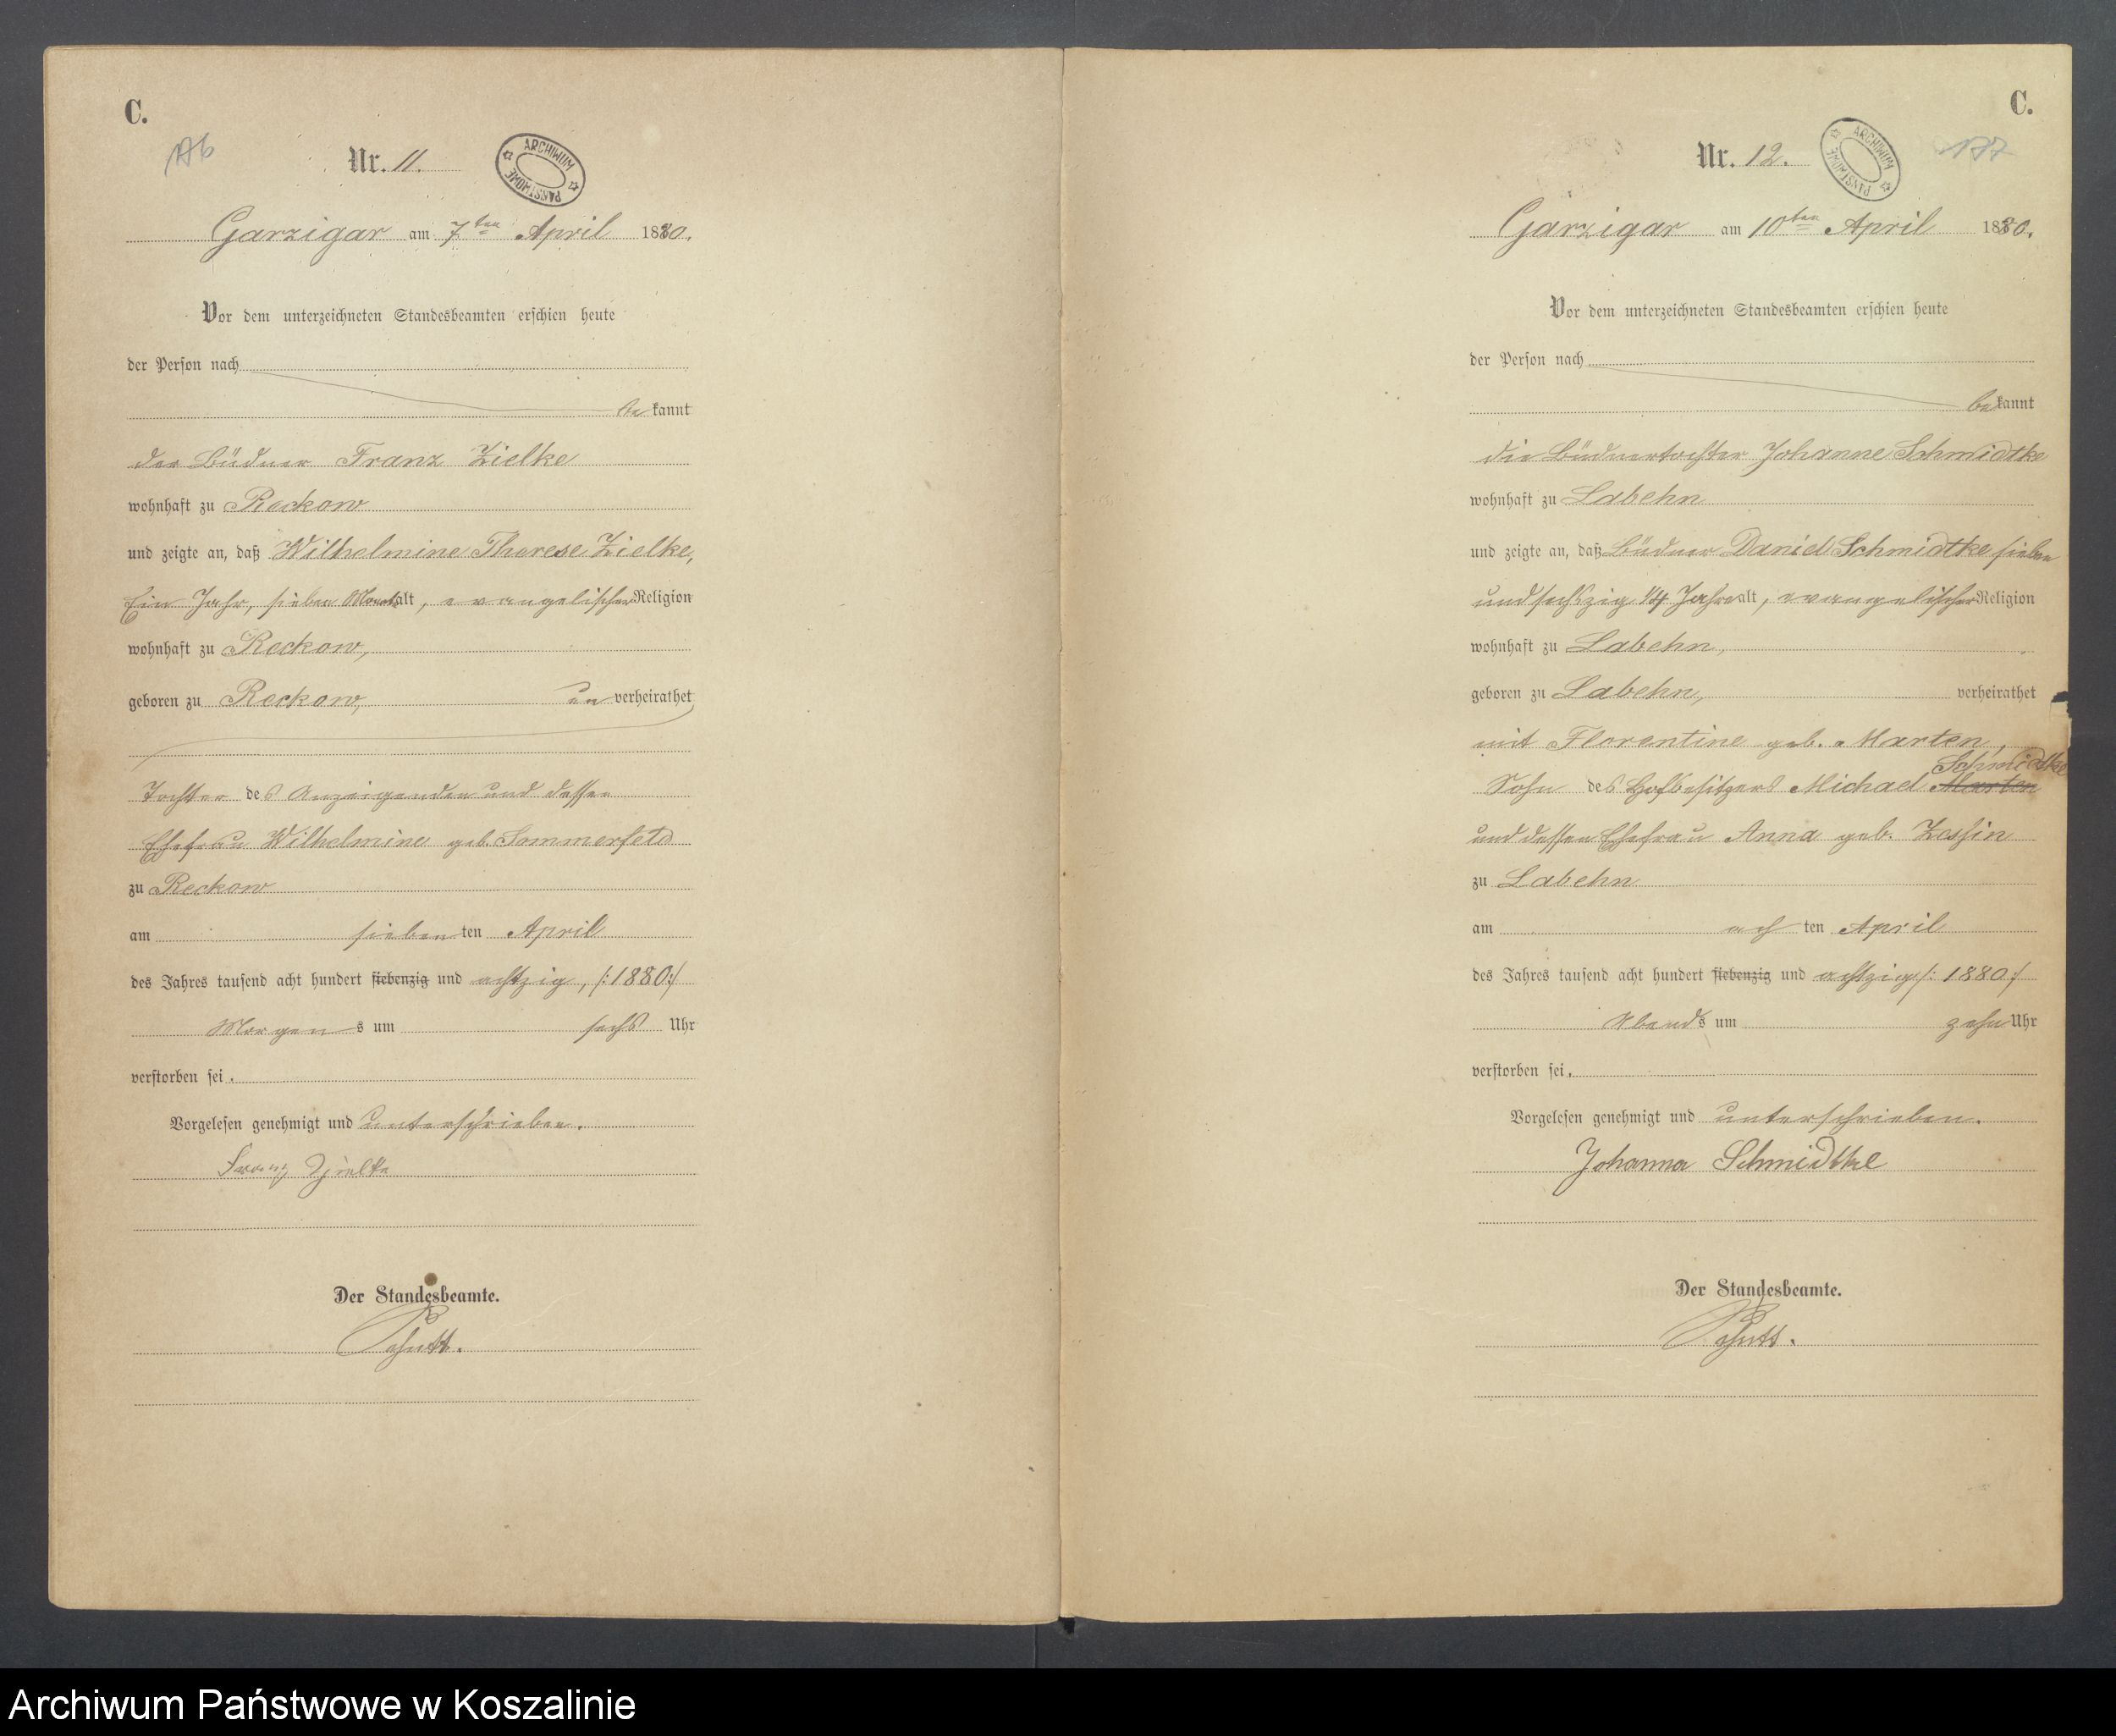 C.
Nr. 11.
ARCHIWUM PAŃSTWOWE
Garzigar am 7ten April 1880.
Vor dem unterzeichneten Standesbeamten erschien heute
der Person nach
bekannt
der Büdner Franz Zielke
wohnhaft zu Reckow
und zeigte an, daß Wilhelmine Therese Zielke,
Ein Jahr, sieben Monat alt, evangelischer Religion
wohnhaft zu Reckow,
geboren zu Reckow, unverheirathet
Tochter des Anzeigenden und dessen
Ehefrau Wilhelmine geb. Sommerfeld
zu Reckow
am siebenten April
des Jahres tausend acht hundert siebenzig und achtzig, /:1880:/
Morgens um sechs Uhr
verstorben sei.
Vorgelesen genehmigt und unterschrieben.
Franz Zielke
Der Standesbeamte.
C.
Nr. 12.
ARCHIWUM PAŃSTWOWE
177
Garzigar am 10ten April 1880.
Vor dem unterzeichneten Standesbeamten erschien heute
der Person nach
bekannt
die Büdnertochter Johanne Schmidtke
wohnhaft zu Labehn
und zeigte an, daß Büdner Daniel Schmidtke sieben
und sechszig 1/4 Jahre alt, evangelischer Religion
wohnhaft zu Labehn,
geboren zu Labehn, verheirathet
mit Florentine geb. Marten,
Schmidtke
Sohn des Hofbesitzers Michael Marten
und dessen Ehefrau Anna geb. Zessin
zu Labehn
am achten April
des Jahres tausend acht hundert siebenzig und achtzig /: 1880:/
Abends um zehn Uhr
verstorben sei.
Vorgelesen genehmigt und unterschrieben.
Johanna Schmidtke
Der Standesbeamte.
Archiwum Państwowe w Koszalinie